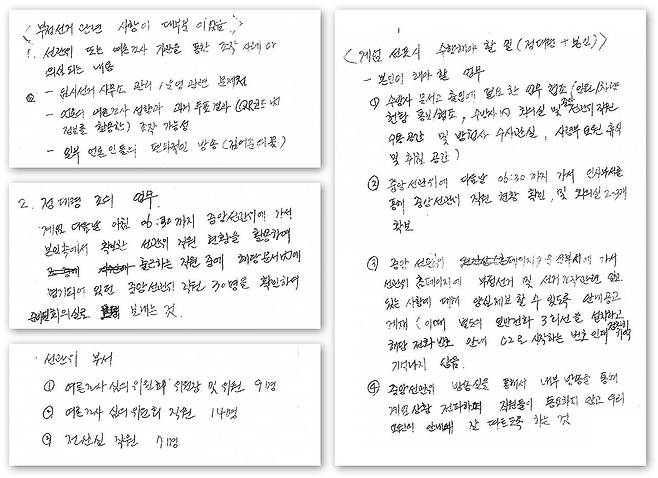 < 부정선거 관련 사항이 대부분 이었음 >
1. 선관위 또는 여론조사 기관을 통한 조작 사례
의심되는 내용
- 원시선거 사무소 관련 문제점
- 여론조사 성향과 과거 투표결과 (QR코드
정보를 활용한) 조작 가능성
- 일부 언론인들의 편파적인 방송 (김어준
2. 정 대령 조의 업무
계엄 다음날 아침 06:30까지 중앙선관위에 가서
본인측에서 확보한 선관위 직원 현황을 활용하여
출근하는 직원 중에 해당문서에
명기되어 있던 중앙선관위 직원 30명을 확인하여
회의실로 보내는 것.
선관위 부서
① 여론조사 심의위원회 위원장 및 위원 9명
② 여론조사 심의 위원회 직원 14명
③ 전산실 직원 7명
< 계엄 선포시 수행해야 할 일 (정대령 + 본인) >
- 본인이 해야 할 업무
① 수방사 문서고 출입에 필요한 업무 협조 (인원/차량
현황 통보/협조, 수방사內 회의실 및 중앙선관위 직원
수용공간 및 방첩사 수사관실, 사령부 요원 휴식
및 취침 공간)
② 중앙선관위에 다음날 06:30까지 가서 인사부서를
통해 중앙선관위 직원 현황 확인, 및 회의실 2~3개
확보
③ 중앙 선관위 홈페이지 관리부서에 가서
선관위 홈페이지에 부정선거 및 선거조작관련 알고
있는 사람에 대해 양심제보 할 수 있도록 안내공고
게재 (이때 별도의 일반전화 3회선을 설치하고
해당 전화번호 안내 02로 시작하는 번호인데 정확히
기억나지 않음.
④ 중앙선관위 방송실을 통해서 내부 방송을 통해
계엄상황 전파하며 직원들이 동요하지 않고 우리
요원의 안내에 잘 따르도록 하는 것